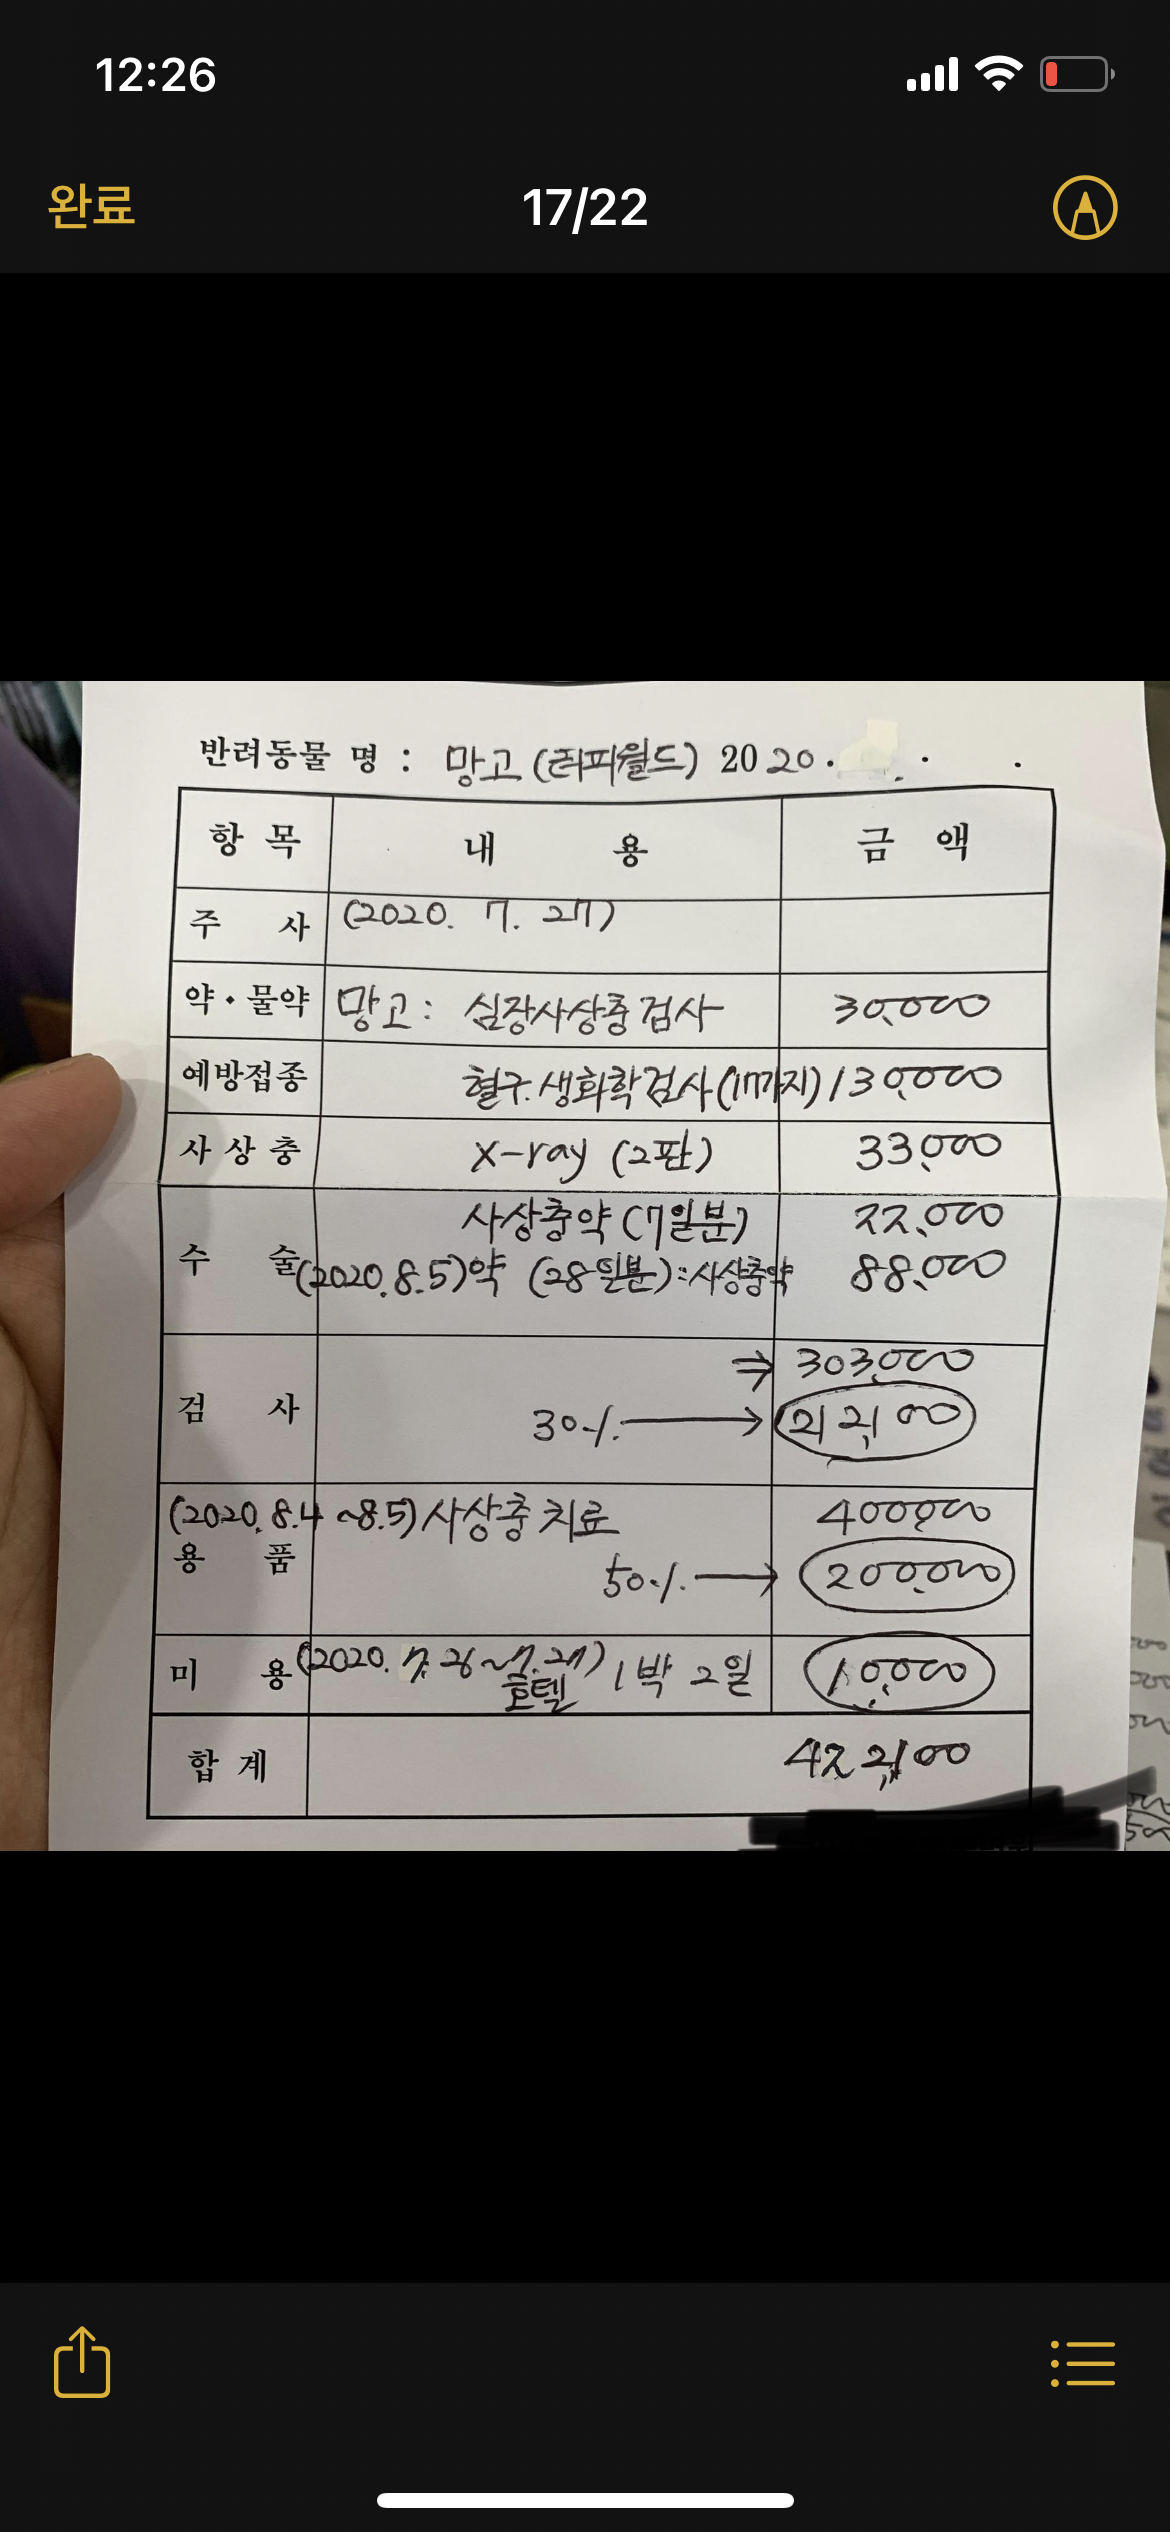 12:26
완료
17/22
반려동물 명 : 망고 (러피월드) 2020 . . .
항 목 내 용 금 액
주 사 (2020. 7. 27)
약·물약 망고 : 심장사상충 검사 30,000
예방접종 혈구. 생화학검사 (17가지) 130,000
사 상 충 X-ray (2판) 33,000
사상충약 (7일분) 22,000
수 술 (2020.8.5) 약 (28일분) : 사상충약 88,000
⇒ 303,000
검 사 30% → 212,100
(2020. 8.4 ~8.5) 사상충 치료 400,000
용 품 50% → 200,000
미 용 (2020. 7. 26 ~ 7. 27) 1박 2일 10,000
호텔
합 계 422,100